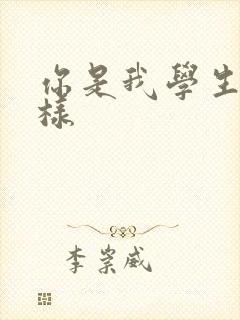 你是我學生
樣
李崇威